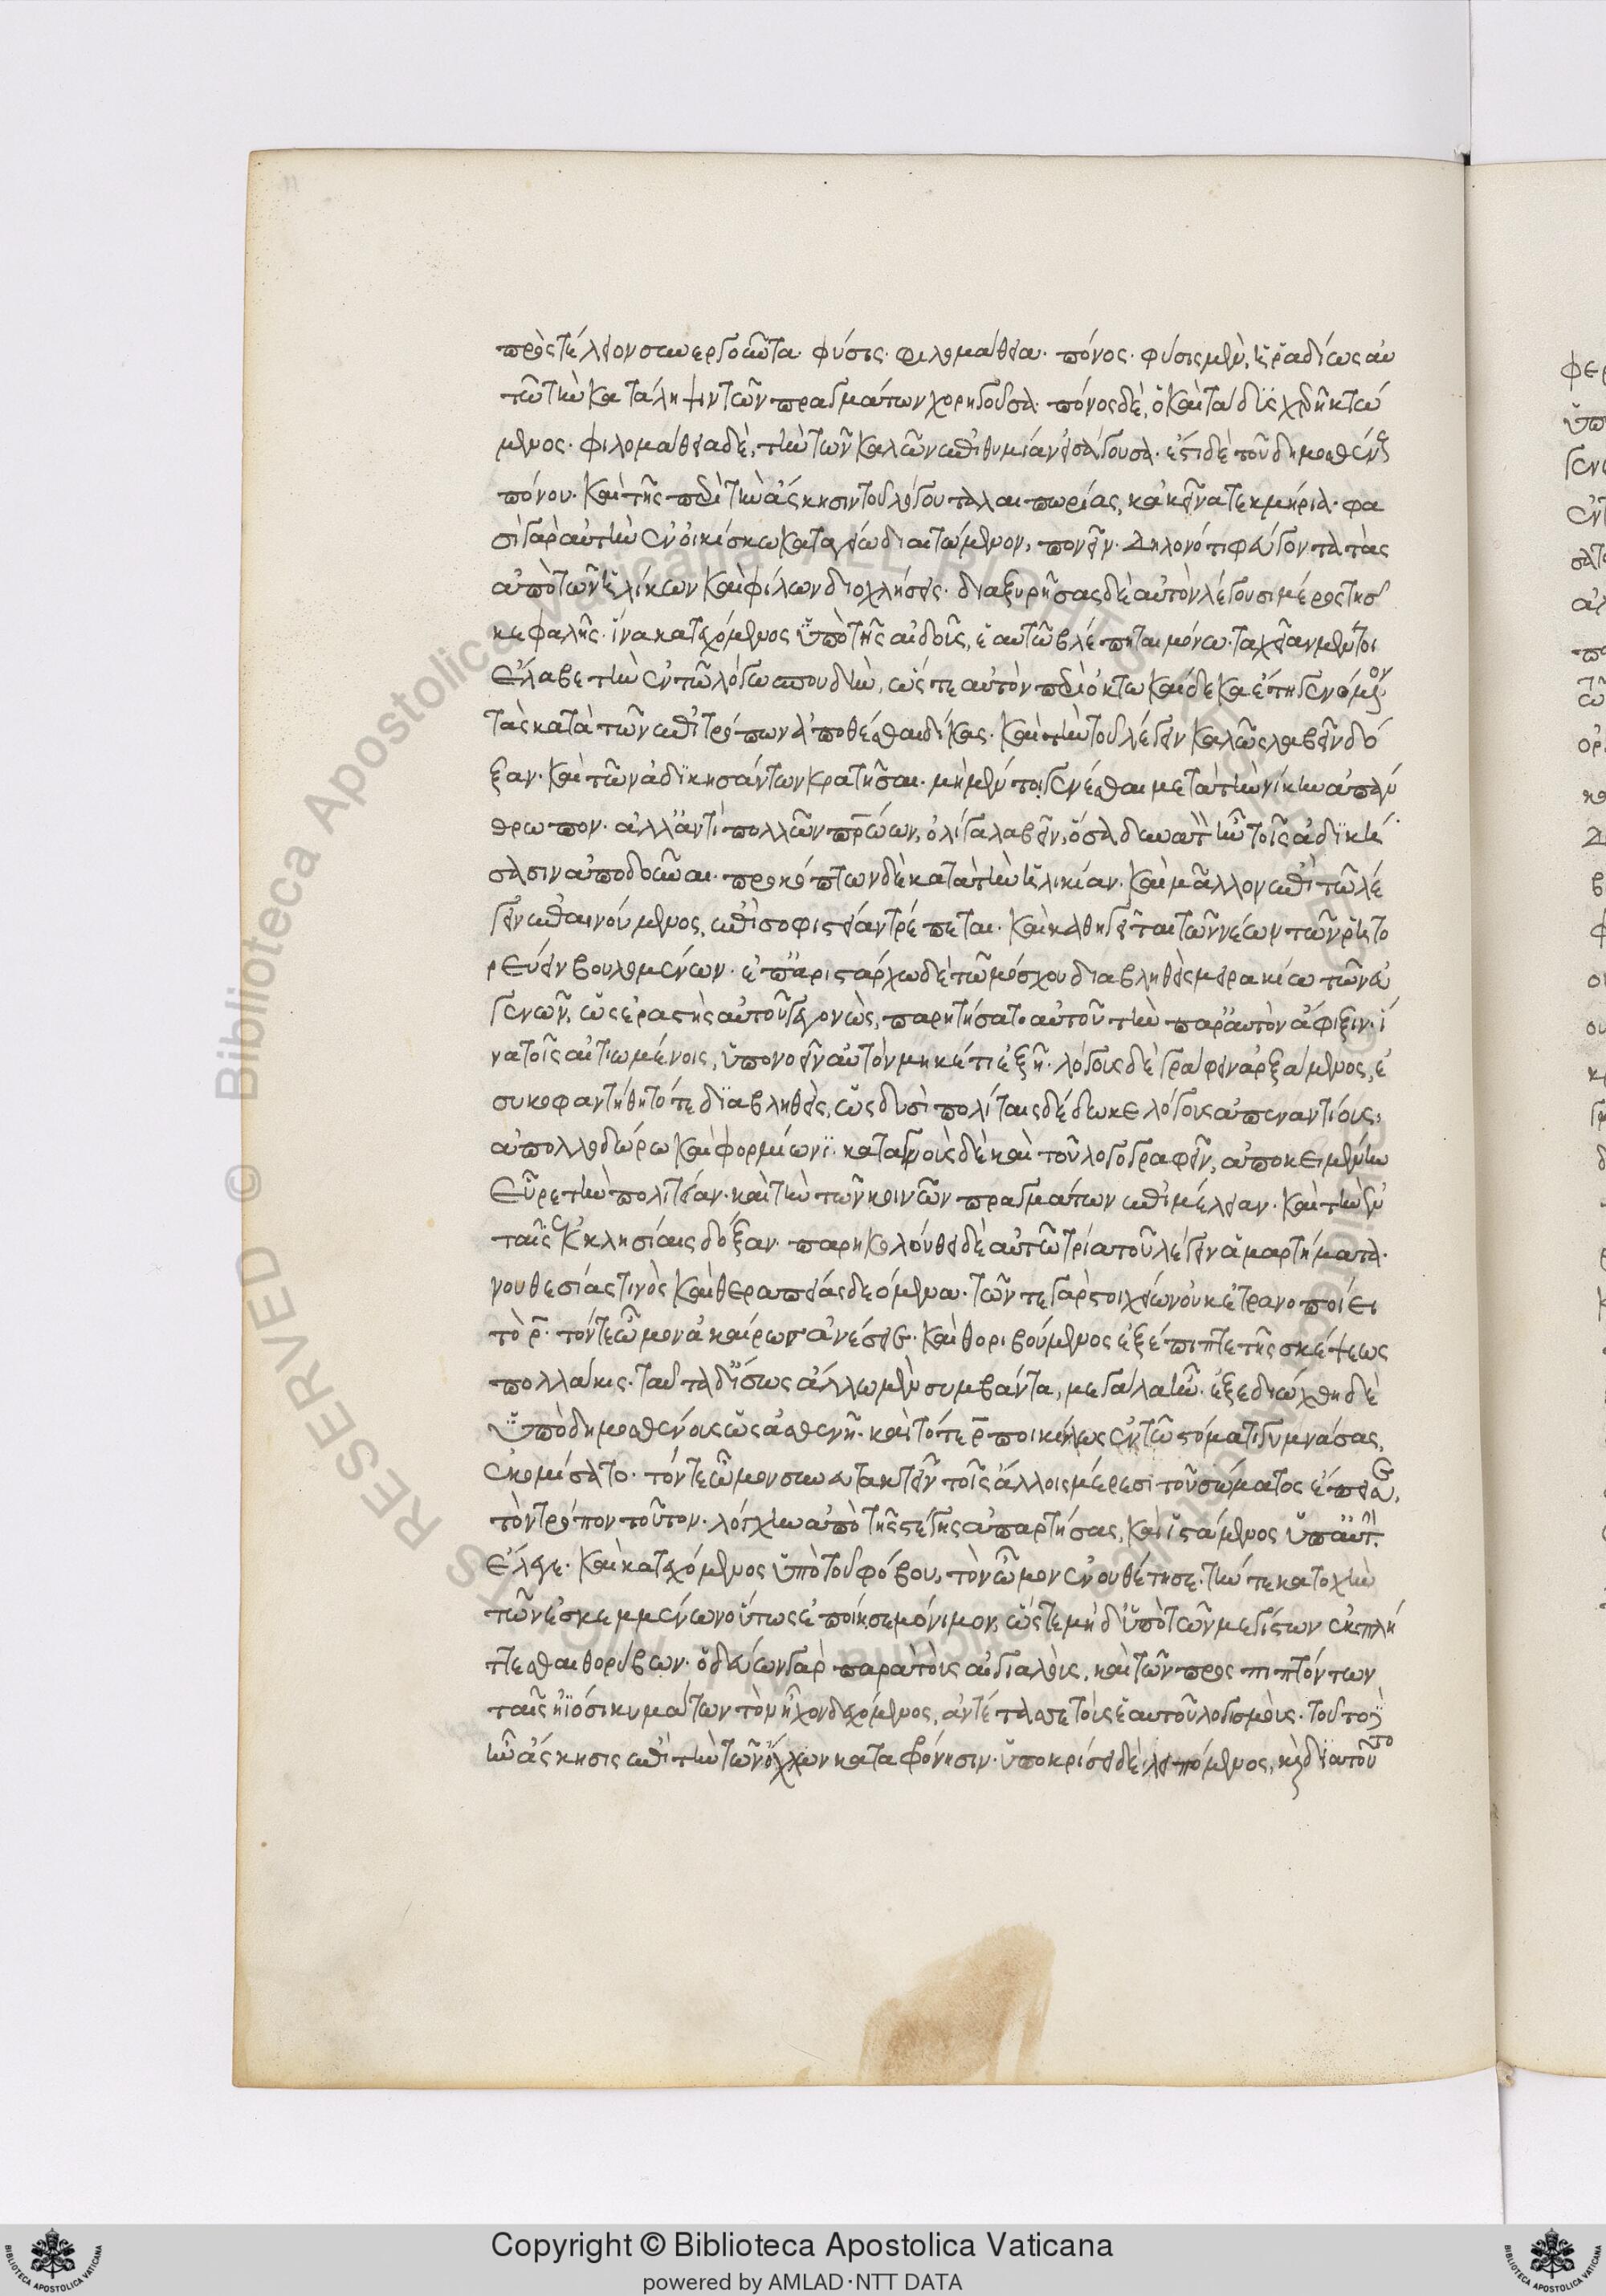 πρὸς τέλειον συνεργοῦντα· φύσις· φιλομάθεια· πόνος· φύσις μὲν, ἡ ῥαδίως αὐ
τῶ τὴν κατάληψιν τῶν πραγμάτων χορηγοῦσα· πόνος δὲ, ὁ καὶ τὰ δυσχερῆ κτώ
μενος· φιλομάθεια δὲ, τὴν τῶν καλῶν ἐπιθυμίαν εἰσάγουσα· ἔστι δὲ τοῦ δημοσθένους
πόνου· καὶ τῆς περὶ τὴν ἄσκησιν τοῦ λόγου ταλαιπωρίας, κἀκεῖνα τεκμήρια· φα
σὶ γὰρ αὐτὸν ἐν οἰκίσκω καταγείω διαιτώμενον, πονεῖν· δηλονότι φεύγοντα τὰς
ἀπὸ τῶν ἡλίκων καὶ φίλων διοχλήσεις· διαξυρῆσαι δὲ αὐτὸν λέγουσι μέρος τῆς
κεφαλῆς· ἵνα κατεχόμενος ὑπὸ τῆς αἰδοῦς, ἑαυτῶ βλέπηται μόνω· ταχεῖαν μέντοι
ἔλαβε τὴν ἐν τῶ λόγω σπουδὴν, ὥστε αὐτὸν περὶ ὀκτωκαίδεκα ἔτη γενόμενον
τὰς κατὰ τῶν ἐπιτρόπων ἀποθέσθαι δίκας· καὶ τὴν τοῦ λέγειν καλῶς λαβεῖν δό
ξαν· καὶ τῶν ἀδικησάντων κρατῆσαι· μὴ μέντοι γενέσθαι μετὰ τὴν νίκην ἀπάν
θρωπον· ἀλλ' ἀντὶ πολλῶν πατρώων, ὀλίγα λαβεῖν, ὅσα δυνατὰ ἦν τοῖς ἀδική
σασιν ἀποδοῦναι· προκόπτων δὲ κατὰ τὴν ἡλικίαν· καὶ μᾶλλον ἐπὶ τῶ λέ
γειν ἐπαινούμενος, ἐπὶ σοφιστείαν τρέπεται· καὶ καθηγεῖται τῶν νέων τῶν ῥητο
ρεύειν βουλομένων· ἐπ' ἀριστάρχω δὲ τῶ μόσχου διαβληθεὶς μειρακίω τῶν εὐ
γενῶν, ὡς ἐραστὴς αὐτοῦ γεγονὼς, παρητήσατο αὐτοῦ τὴν παρ' αὐτὸν ἄφιξιν· ἵ
να τοῖς αἰτιωμένοις, ὑπονοεῖν αὐτὸν μηκέτι ἐξῆ· λόγους δὲ γράφειν ἀρξάμενος, ἐ
συκοφαντήθη τότε διαβληθεὶς, ὡς δυσὶ πολίταις δέδωκε λόγους ἀπεναντίους,
ἀπολλοδώρω καὶ φορμίωνι· καταγνοὺς δὲ καὶ τοῦ λογογραφεῖν, ἀποκειμένην
εὗρε τὴν πολιτείαν· καὶ τὴν τῶν κοινῶν πραγμάτων ἐπιμέλειαν· καὶ τὴν ἐν
ταῖς ἐκκλησίαις δόξαν· παρηκολούθει δὲ αὐτῶ τρία τοῦ λέγειν ἁμαρτήματα·
νουθεσίας τινὸς καὶ θεραπείας δεόμενα· τῶν τε γὰρ στοιχείων οὐκ ἐτρανοποίει
τὸ ρ· τόν τε ὦμον ἀκαίρως ἀνέσειε· καὶ θορυβούμενος ἐξέπιπτε τῆς σκέψεως
πολλάκις· ταῦτα δ' ἴσως ἄλλω μὲν συμβάντα, μεγάλα ἦν· ἐξεδιώχθη δὲ
ὑπὸ δημοσθένους ὡς ἀσθενῆ· καὶ τό τε ρ ποικίλως ἐν τῶ στόματι γυμνάσας,
ἐκομίσατο· τόν τε ὦμον συνευτακτεῖν τοῖς ἄλλοις μέρεσι τοῦ σώματος ἔπεισε,
τὸν τρόπον τοῦτον· λόγχην ἀπὸ τῆς στέγης ἀπαρτήσας, καὶ ἱστάμενος ὑπ' αὐτὴν
ἔλεγε· καὶ κατεχόμενος ὑπὸ τοῦ φόβου, τὸν ὦμον ἐνουθέτησε· τήν τε κατοχὴν
τῶν ἐσκεμμένων οὕτως ἐποίησε μόνιμον, ὥστε μηδ' ὑπὸ τῶν μεγίστων ἐκπλή
ττεσθαι θορύβων· ὁδεύων γὰρ παρὰ τοὺς αἰγιαλοὺς, καὶ τῶν προσπιπτόντων
ταῖς ἠϊόσι κυμάτων τὸν ἦχον δεχόμενος, ἀντέταττε τοὺς ἑαυτοῦ λογισμοὺς· τοῦτο
ἦν ἄσκησις ἐπὶ τὴν τῶν ὄχλων καταφρόνησιν· ὑποκρίσει δὲ λειπόμενος, καὶ διὰ τοῦτο